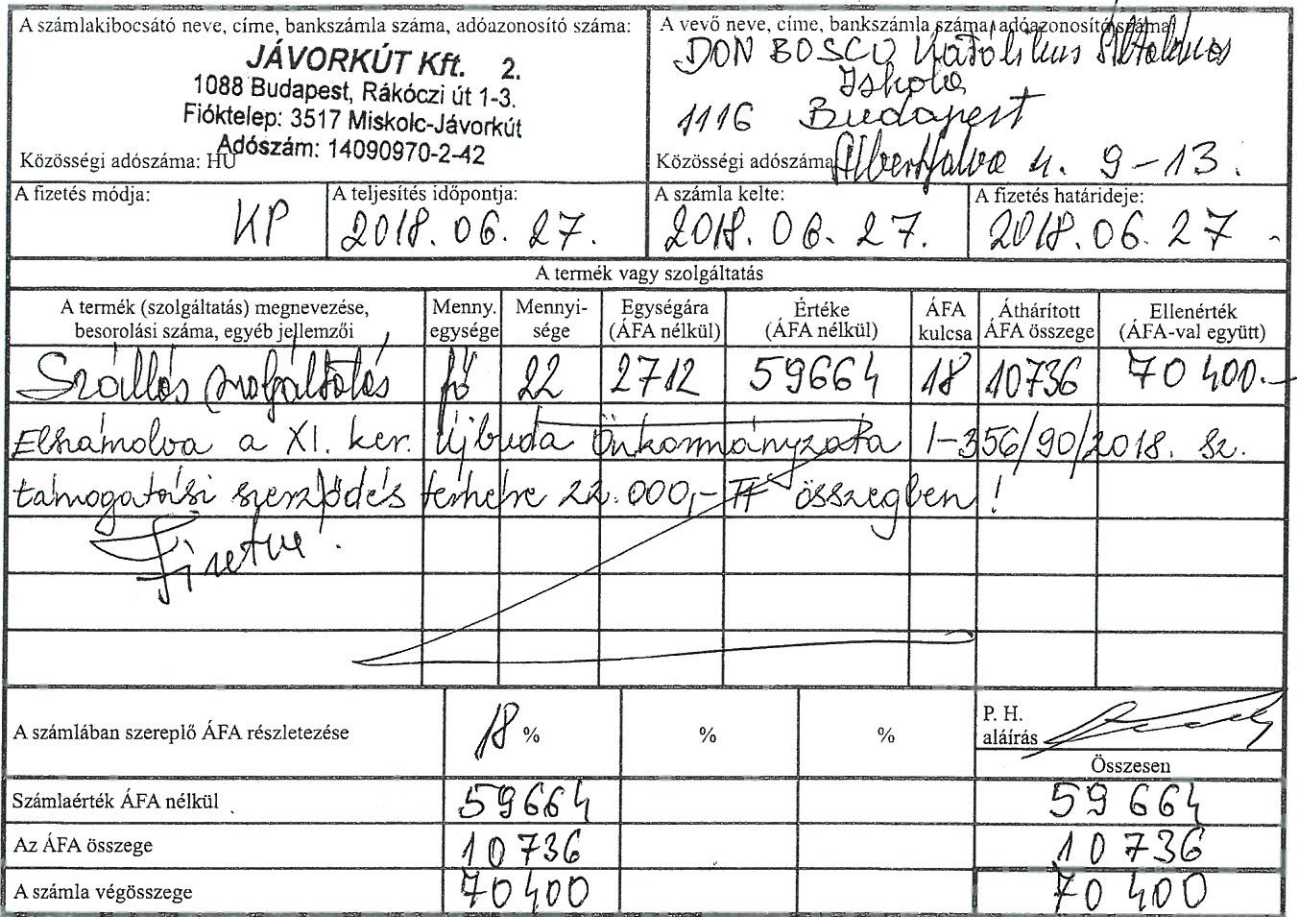 A számlakibocsátó neve, címe, bankszámla száma, adóazonosító száma:
JÁVORKÚT Kft. 2.
1088 Budapest, Rákóczi út 1-3.
Fióktelep: 3517 Miskolc-Jávorkút
Adószám: 14090970-2-42
Közösségi adószáma: HU
A vevő neve, címe, bankszámla száma, adóazonosító száma:
DON BOSCO Katolikus Általános
Iskola
1116 Budapest
Közösségi adószáma Albertfalva u. 9-13.
A fizetés módja: A teljesítés időpontja: A számla kelte: A fizetés határideje:
KP 2018. 06. 27. 2018. 06. 27. 2018. 06. 27
A termék vagy szolgáltatás
A termék (szolgáltatás) megnevezése, Menny. Mennyi- Egységára Értéke ÁFA Áthárított Ellenérték
besorolási száma, egyéb jellemzői egysége sége (ÁFA nélkül) (ÁFA nélkül) kulcsa ÁFA összege (ÁFA-val együtt)
Szállás szolgáltatás fő 22 2712 59664 18 10736 70 400.-
Elszámolva a XI. ker. Újbuda Önkormányzata I-356/90/2018. sz.
támogatási szerződés terhére 22.000,- Ft összegben!
Fizetve!
A számlában szereplő ÁFA részletezése 18 % % %
P. H.
aláírás
Összesen
Számlaérték ÁFA nélkül 59664 59 664
Az ÁFA összege 10736 10 736
A számla végösszege 70400 70 400